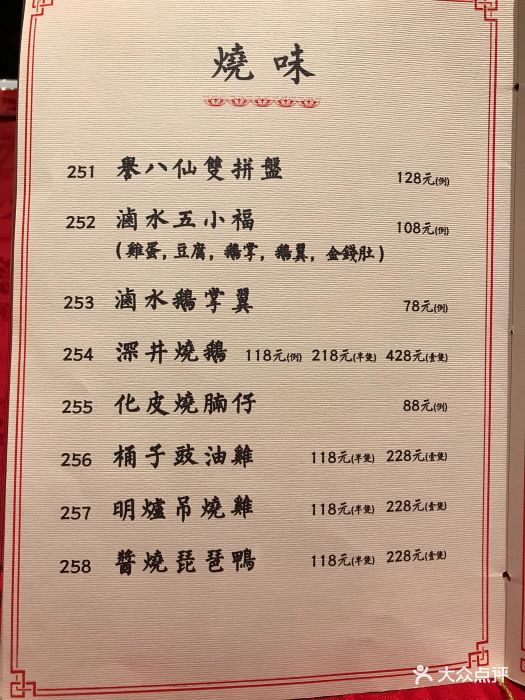 燒味
251 譽八仙雙拼盤 128元(例)
252 滷水五小福 108元(例)
(雞蛋,豆腐,鵝掌,鵝翼,金錢肚)
253 滷水鵝掌翼 78元(例)
254 深井燒鵝 118元(例) 218元(半隻) 428元(壹隻)
255 化皮燒腩仔 88元(例)
256 桶子豉油雞 118元(半隻) 228元(壹隻)
257 明爐吊燒雞 118元(半隻) 228元(壹隻)
258 醬燒琵琶鴨 118元(半隻) 228元(壹隻)
大众点评